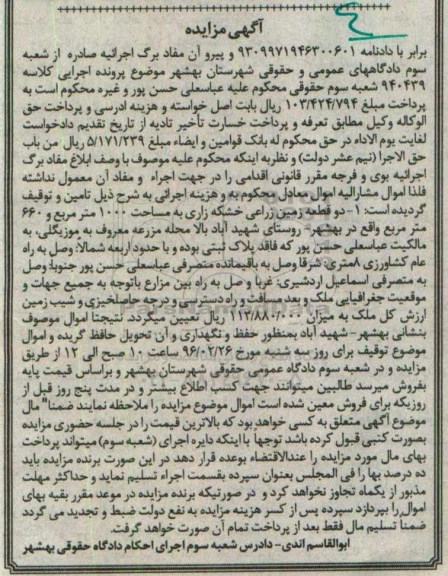 آگهی مزایده
برابر با دادنامه ۹۳۰۹۹۷۱۹۴۶۳۰۰۶۰۱ و پیرو آن مفاد برگ اجرائیه صادره از شعبه
سوم دادگاههای عمومی و حقوقی شهرستان بهشهر موضوع پرونده اجرایی کلاسه
۹۴۰۴۳۹ شعبه سوم حقوقی محکوم علیه عباسعلی حسن پور و غیره محکوم است به
پرداخت مبلغ ۱۰۳/۴۲۴/۷۹۴ ریال بابت اصل خواسته و هزینه ادرسی و پرداخت حق
الوکاله وکیل مطابق تعرفه و پرداخت خسارت تأخیر تادیه از تاریخ تقدیم دادخواست
لغایت یوم الاداء در حق محکوم له بانک قوامین و ایضاء مبلغ ۵/۱۷۱/۲۳۹ ریال من باب
حق الاجرا (نیم عشر دولت) و نظربه اینکه محکوم علیه موصوف با وصف ابلاغ مفاد برگ
اجرائیه بوی و فرجه مقرر قانونی اقدامی را در جهت اجراء و مفاد آن معمول نداشته
فلذا اموال مشارالیه اموال معادل محکوم به و هزینه اجرائی به شرح ذیل تامین و توقیف
گردیده است: ۱- دو قطعه زمین زراعی خشکه زاری به مساحت ۱۰۰۰ متر مربع و ۶۶۰
متر مربع واقع در بهشهر- روستای شهید آباد بالا محله مزرعه معروف به موزیگلی، به
مالکیت عباسعلی حسن پور که فاقد پلاک ثبتی بوده و با حدود اربعه شمالا: وصل به راه
عام کشاورزی ۸متری، شرقا وصل به باقیمانده متصرفی عباسعلی حسن پور جنوبا: وصل
به متصرفی اسماعیل اردشیری: غربا و صل به راه بین مزارع باتوجه به جمیع جهات و
موقعیت جغرافیایی ملک و بعد مسافت و راه دسترسی و درجه حاصلخیزی و شیب زمین
ارزش کل ملک به میزان ۱۱۲/۸۸۰/۰۰۰ ریال تعیین میگردد. نتیجتا اموال موصوف
بنشانی بهشهر - شهید آباد بمنظور حفظ و نگهداری و آن تحویل حافظ گریده و اموال
موضوع توقیف برای روز سه شنبه مورخ ۹۶/۰۲/۲۶ ساعت ۱۰ صبح الی ۱۲ از طریق
مزایده و در شعبه سوم دادگاه عمومی حقوقی شهرستان بهشهر و براساس قیمت پایه
بفروش میرسد طالبین میتوانند جهت کسب اطلاع بیشتر و در مدت پنج روز قبل از
روزیکه برای فروش معین شده است اموال موضوع مزایده را ملاحظه نمایند ضمنا" مال
موضوع آگهی متعلق به کسی خواهد بود که بالاترین قیمت را در جلسه حضوری مزایده
بصورت کتبی قبول کرده باشد توجها با اینکه دایره اجرای (شعبه سوم) میتواند پرداخت
بهای مال مورد مزایده را عندالاقتضاء بوعده قرار دهد در این صورت برنده مزایده باید
ده درصد بها را فی المجلس بعنوان سپرده بقسمت اجراء تسلیم نماید و حداکثر مهلت
مذبور از یکماه تجاوز نخواهد کرد و در صورتیکه برنده مزایده در موعد مقرر بقیه بهای
اموال را بپردازد سپرده پس از کسر هزینه مزایده به نفع دولت ضبط و تجدید می گردد
ضمنا تسلیم مال فقط بعد از پرداخت تمام آن صورت خواهد گرفت.
ابوالقاسم اندی- دادرس شعبه سوم اجرای احکام دادگاه حقوقی بهشهر